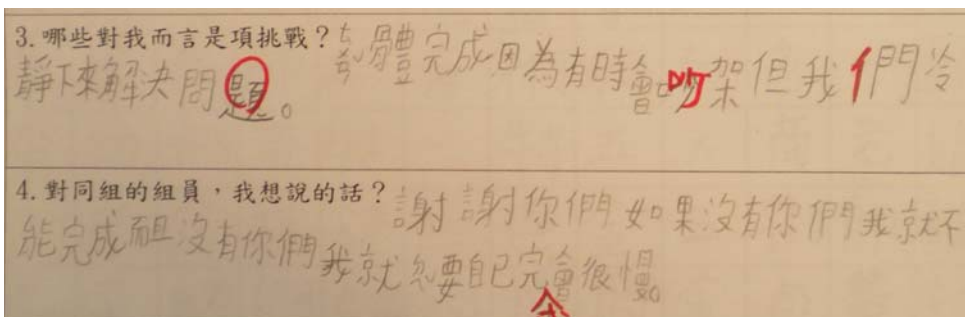 3. 哪些對我而言是項挑戰？體完成因為有時會吵架但我們冷
靜下來解決問題。
4. 對同組的組員，我想說的話？謝謝你們如果沒有你們我就不
能完成而且沒有你們我就要自己完會很慢。